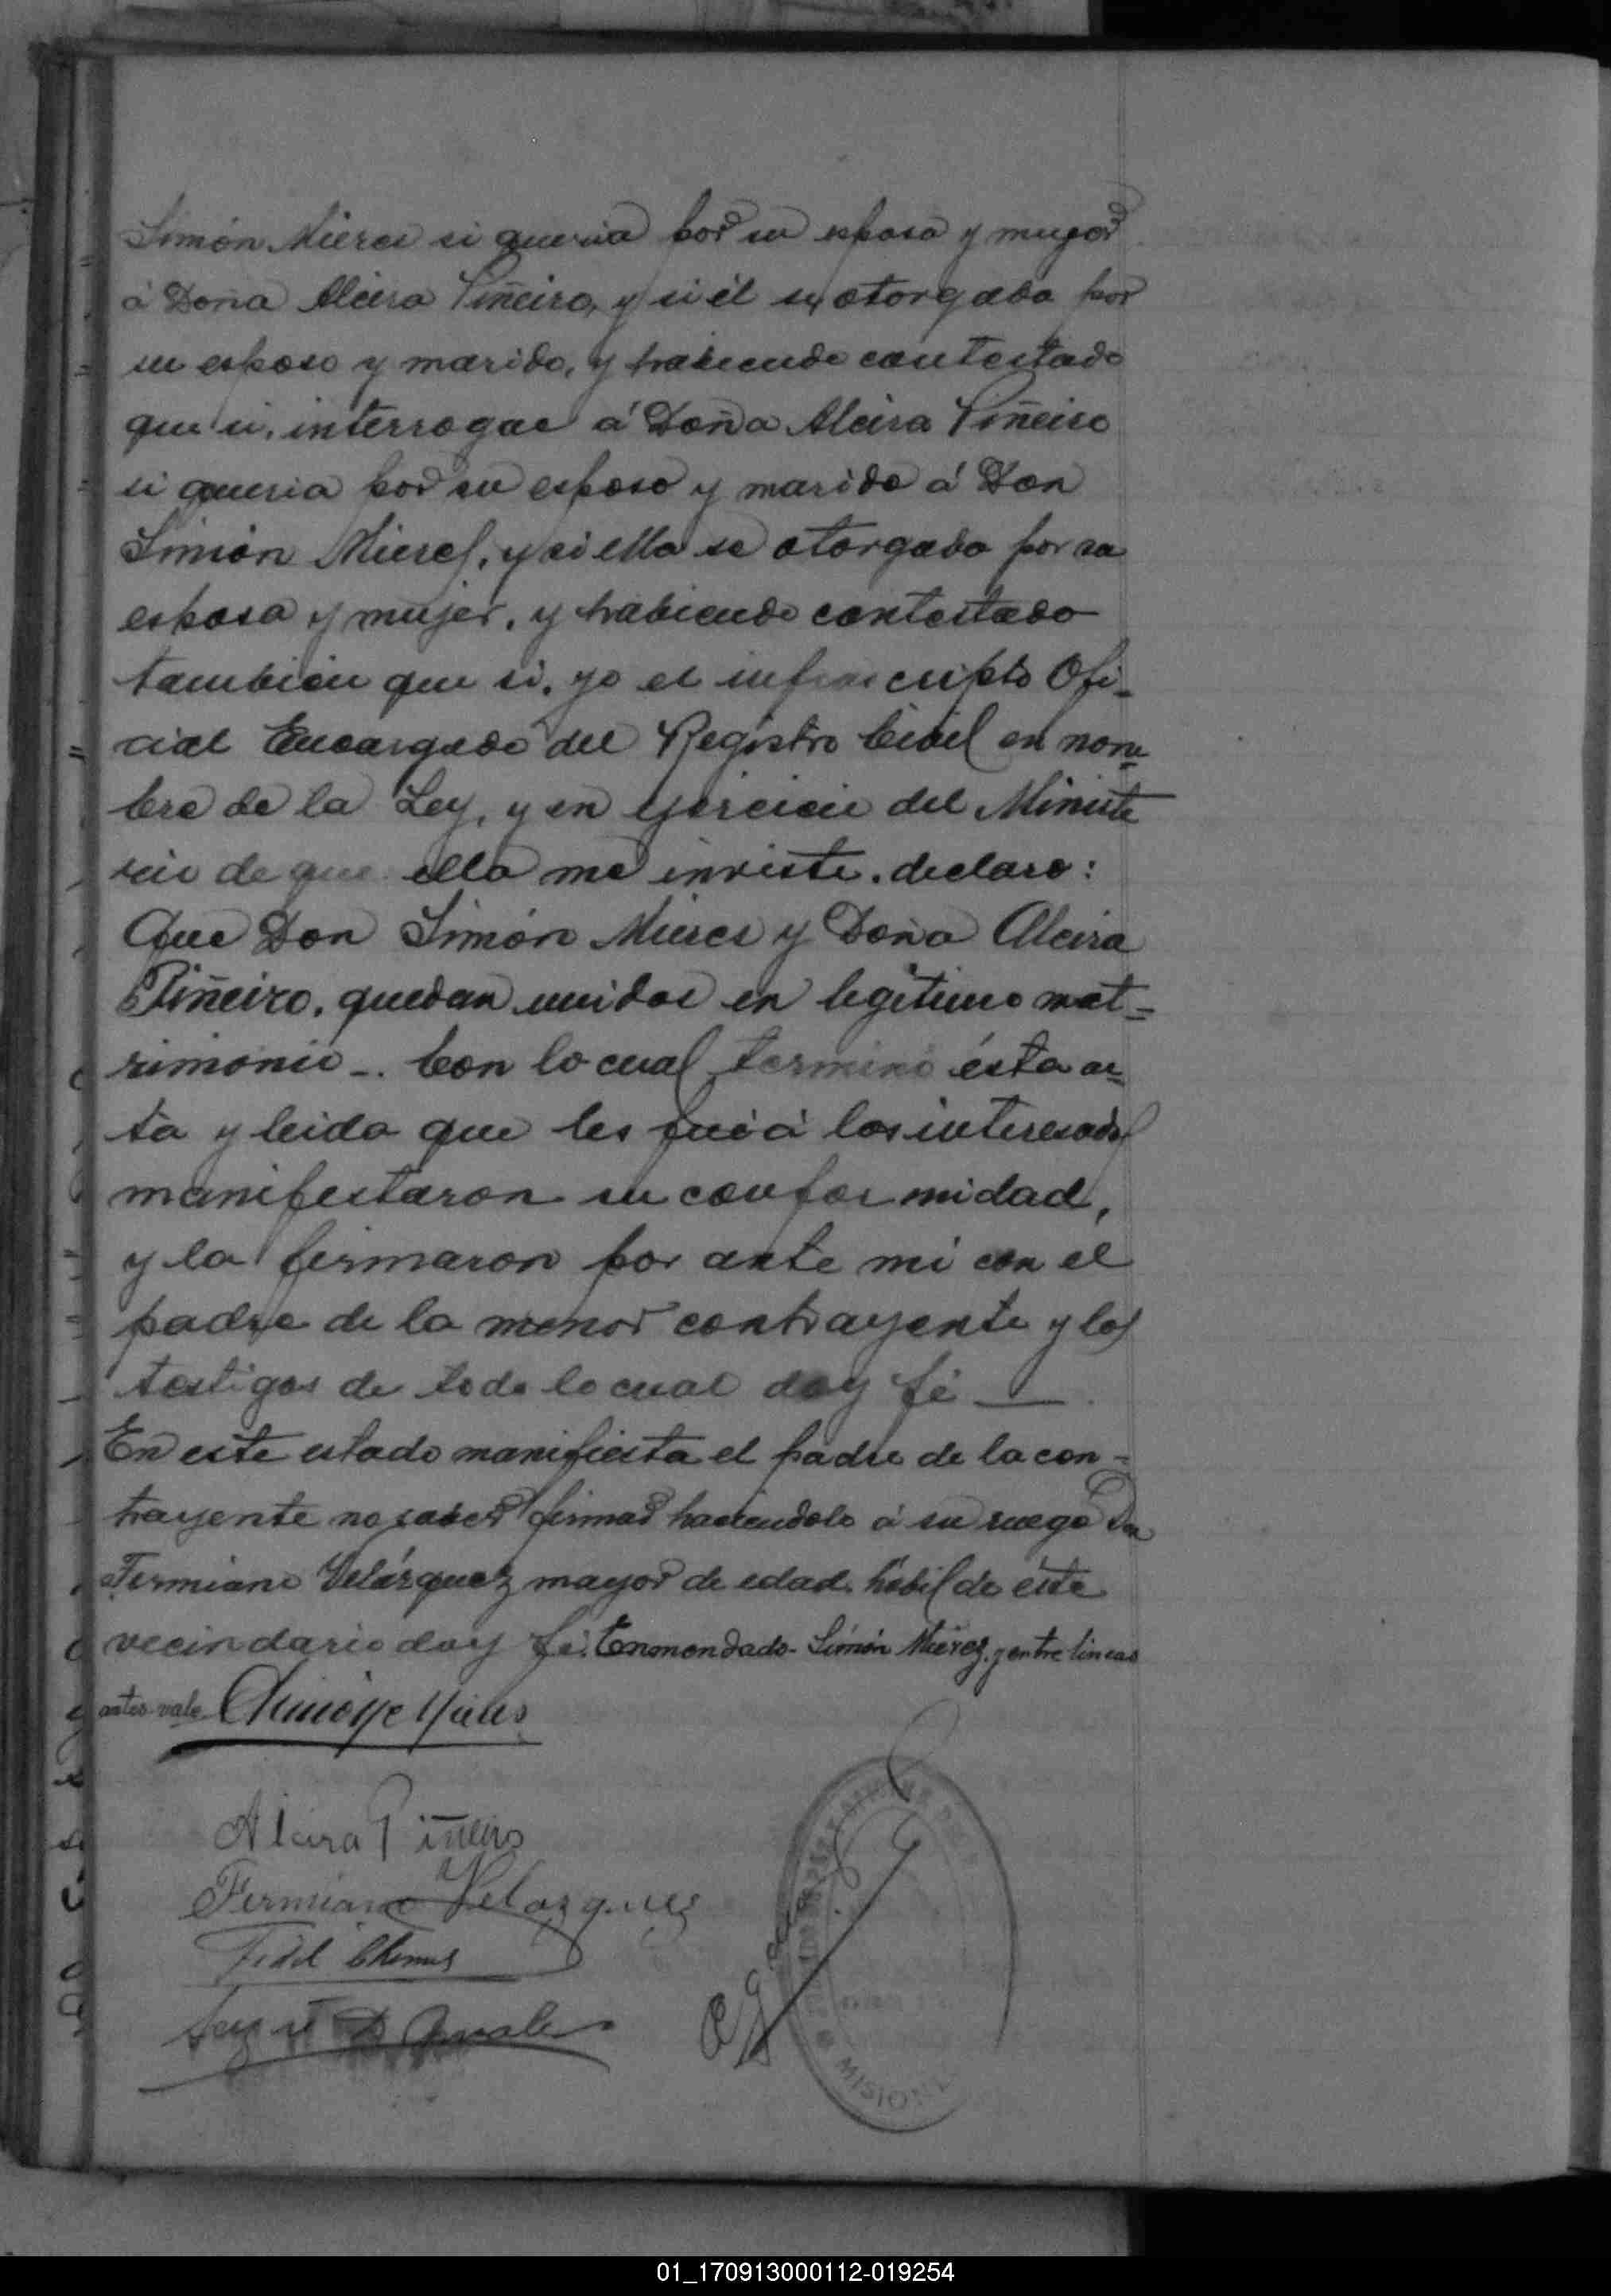 Simón Mieres si queria por su esposa y muger
á Doña Alcira Piñeiro, y si él se otorgaba por
su esposo y marido, y habiendo contestado
que si, interrogué á Doña Alcira Piñeiro
si queria por su esposo y marido á Don
Simón Mieres, y si ella se otorgaba por su
esposa y mujer, y habiendo contestado
tambien que si, yo el infrascripto Ofi-
cial Encargado del Registro Civil en nom-
bre de la Ley, y en ejercicio del Ministe
rio de que ella me inviste, declaro:
Que Don Simón Mieres y Doña Alcira
Piñeiro, quedan unidos en legitimo mat=
rimonio -. Con lo cual terminó ésta ac-
ta y leida que les fué á los interesados
manifestaron su conformidad,
y la firmaron por ante mi con el
padre de la menor contrayente y los
testigos de todo lo cual doy fé —
En este estado manifiesta el padre de la con=
trayente no saber firmar haciendolo á su ruego Don
Fermiano Velázquez mayor de edad, hábil de éste
vecindario doy fé. Enmendado - Simón Mieres, y entre lineas
antes - vale
Alcira Piñeiro
Fermiano Velazquez
Fidel
MISIONES
01_170913000112-019254